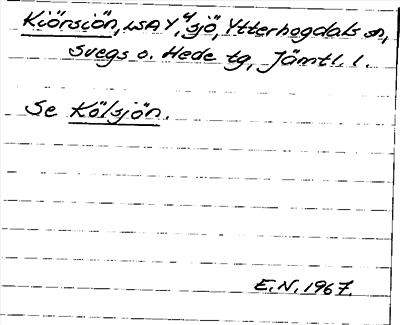 Kiörsiön, WSAY, 4 sjö, Ytterhogdals sn,
Svegs o. Hede tg, Jämtl. l.
Se Kölsjön.
E.N. 1967.